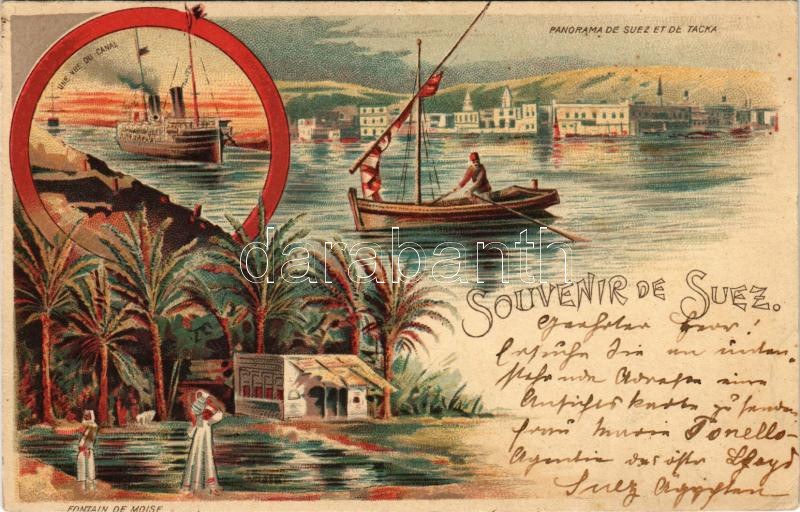 UNE VUE DU CANAL
PANORAMA DE SUEZ ET DE TACKA
darabanth
SOUVENIR DE SUEZ.
Geehrter Herr!
Ersuche Sie an unten-
stehende Adresse eine
Ansichtskarte zu senden
Frau Marie Tonello-
Agentie des östr Lloyd
Suez Ägypten
FONTAIN DE MOISE